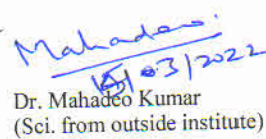 Mahadeo
15/03/2022
Dr. Mahadeo Kumar
(Sci. from outside institute)